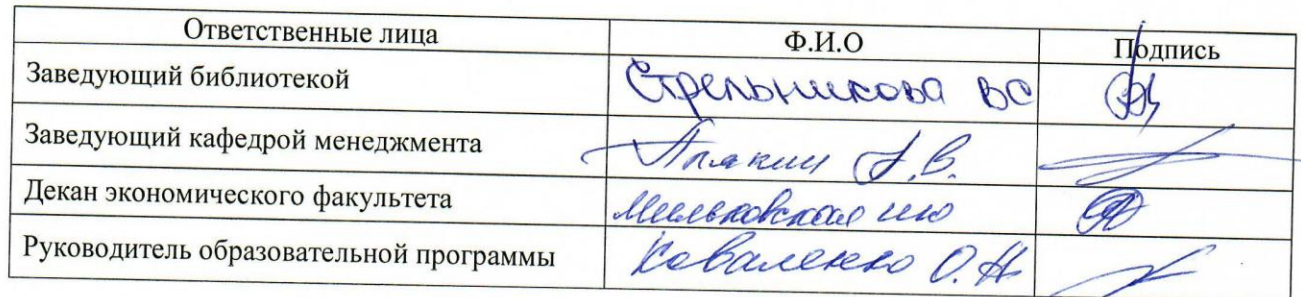 Ответственные лица Ф.И.О Подпись
Заведующий библиотекой Стрельникова ВС
Заведующий кафедрой менеджмента А.В.
Декан экономического факультета Мильковская ИЮ
Руководитель образовательной программы Коваленко О.Н